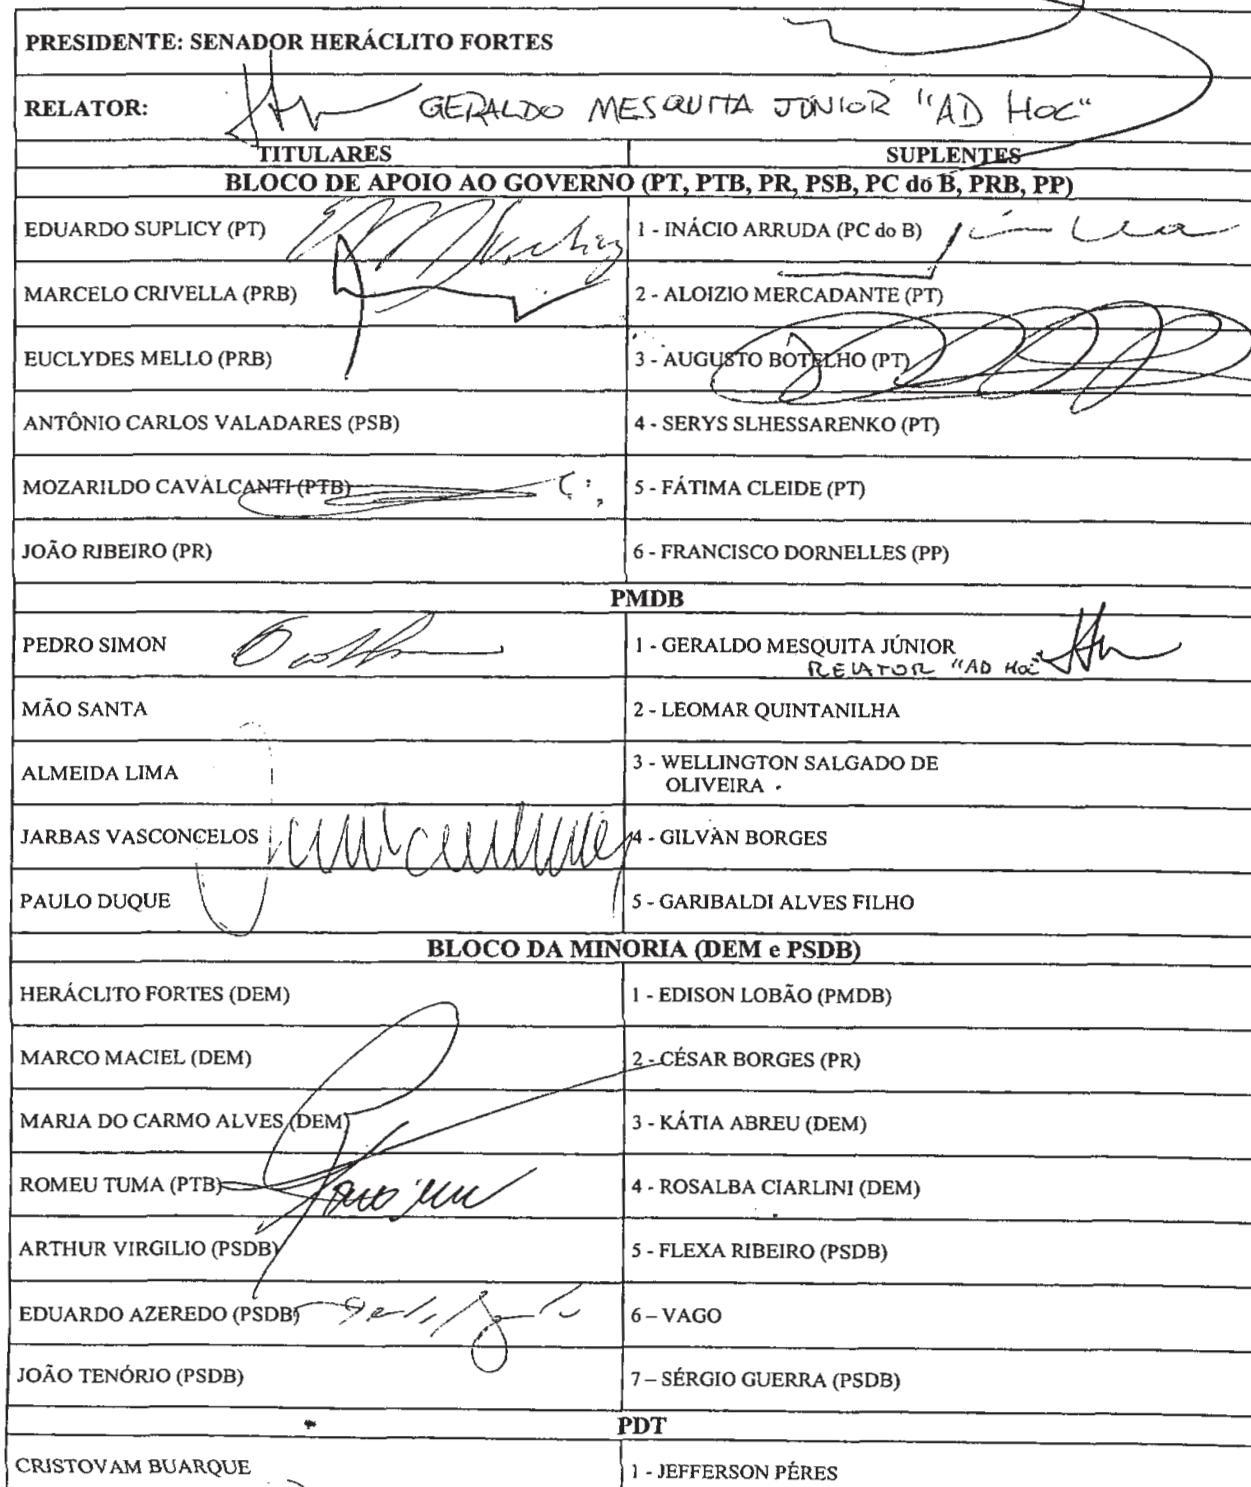 PRESIDENTE: SENADOR HERÁCLITO FORTES
RELATOR: GERALDO MESQUITA JÚNIOR "AD HOC"
TITULARES SUPLENTES
BLOCO DE APOIO AO GOVERNO (PT, PTB, PR, PSB, PC do B, PRB, PP)
EDUARDO SUPLICY (PT) 1 - INÁCIO ARRUDA (PC do B)
MARCELO CRIVELLA (PRB) 2 - ALOIZIO MERCADANTE (PT)
EUCLYDES MELLO (PRB) 3 - AUGUSTO BOTELHO (PT)
ANTÔNIO CARLOS VALADARES (PSB) 4 - SERYS SLHESSARENKO (PT)
MOZARILDO CAVALCANTI (PTB) 5 - FÁTIMA CLEIDE (PT)
JOÃO RIBEIRO (PR) 6 - FRANCISCO DORNELLES (PP)
PMDB
PEDRO SIMON 1 - GERALDO MESQUITA JÚNIOR
RELATOR "AD HOC"
MÃO SANTA 2 - LEOMAR QUINTANILHA
ALMEIDA LIMA 3 - WELLINGTON SALGADO DE
OLIVEIRA
JARBAS VASCONCELOS 4 - GILVAN BORGES
PAULO DUQUE 5 - GARIBALDI ALVES FILHO
BLOCO DA MINORIA (DEM e PSDB)
HERÁCLITO FORTES (DEM) 1 - EDISON LOBÃO (PMDB)
MARCO MACIEL (DEM) 2 - CÉSAR BORGES (PR)
MARIA DO CARMO ALVES (DEM) 3 - KÁTIA ABREU (DEM)
ROMEU TUMA (PTB) 4 - ROSALBA CIARLINI (DEM)
ARTHUR VIRGILIO (PSDB) 5 - FLEXA RIBEIRO (PSDB)
EDUARDO AZEREDO (PSDB) 6 – VAGO
JOÃO TENÓRIO (PSDB) 7 – SÉRGIO GUERRA (PSDB)
PDT
CRISTOVAM BUARQUE 1 - JEFFERSON PÉRES